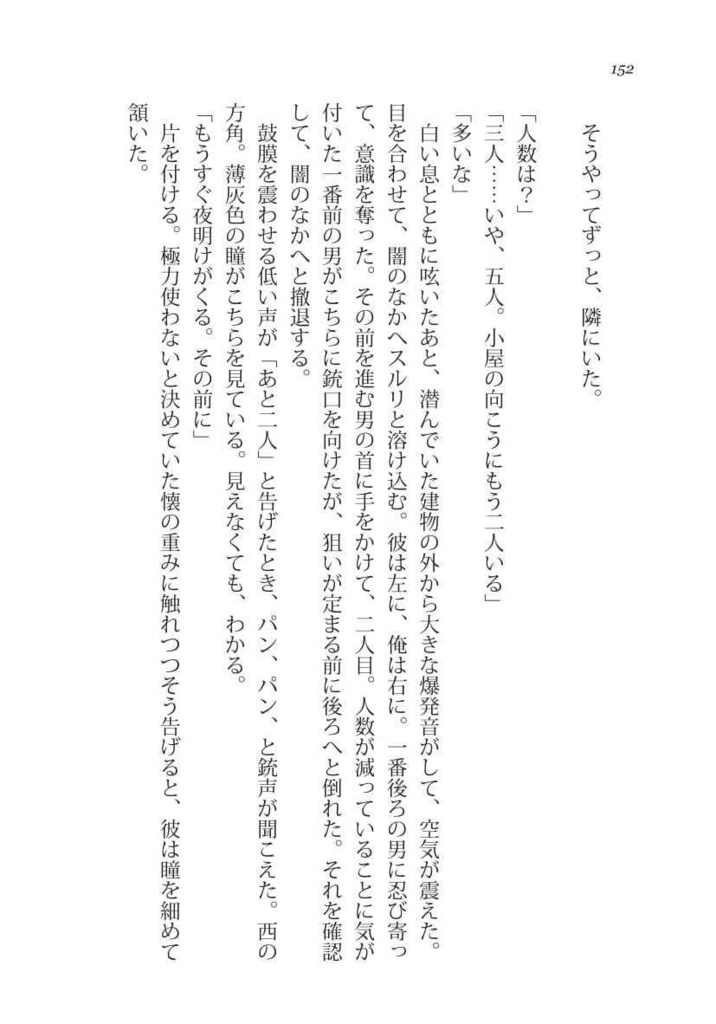 152
そうやってずっと、隣にいた。
「人数は？」
「三人……いや、五人。小屋の向こうにもう二人いる」
「多いな」
白い息とともに呟いたあと、潜んでいた建物の外から大きな爆発音がして、空気が震えた。
目を合わせて、闇のなかへスルリと溶け込む。彼は左に、俺は右に。一番後ろの男に忍び寄っ
て、意識を奪った。その前を進む男の首に手をかけて、二人目。人数が減っていることに気が
付いた一番前の男がこちらに銃口を向けたが、狙いが定まる前に後ろへと倒れた。それを確認
して、闇のなかへと撤退する。
鼓膜を震わせる低い声が「あと二人」と告げたとき、パン、パン、と銃声が聞こえた。西の
方角。薄灰色の瞳がこちらを見ている。見えなくても、わかる。
「もうすぐ夜明けがくる。その前に」
片を付ける。極力使わないと決めていた懐の重みに触れつつそう告げると、彼は瞳を細めて
頷いた。